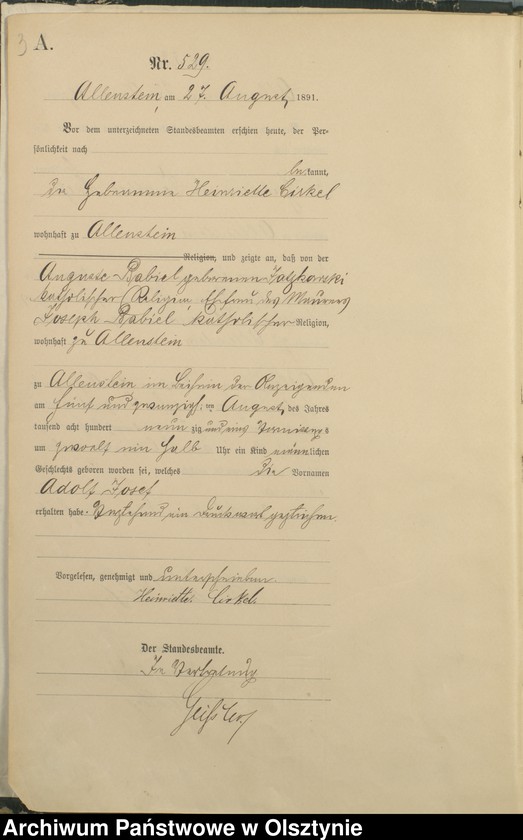 3 A.
Nr. 529.
Allenstein, am 27. August 1891.
Vor dem unterzeichneten Standesbeamten erschien heute, der Per-
sönlichkeit nach
be kannt,
die Hebamme Heinriette Cirkel
wohnhaft zu Allenstein
Religion, und zeigte an, daß von der
Auguste Babiel geborenen
katholischer Religion, Ehefrau des Maurers
Joseph Babiel katholischer Religion,
wohnhaft zu Allenstein
zu Allenstein im Beisein der Anzeigenden
am fünf und zwanzigsten August des Jahres
tausend acht hundert neunzig und eins Vormittags
um zwölf ein halb Uhr ein Kind männlichen
Geschlechts geboren worden sei, welches die Vornamen
Adolf Josef
erhalten habe. Vorstehend ein Druckwort gestrichen.
Vorgelesen, genehmigt und unterschrieben
Heinriette Cirkel.
Der Standesbeamte.
In Vertretung
Archiwum Państwowe w Olsztynie